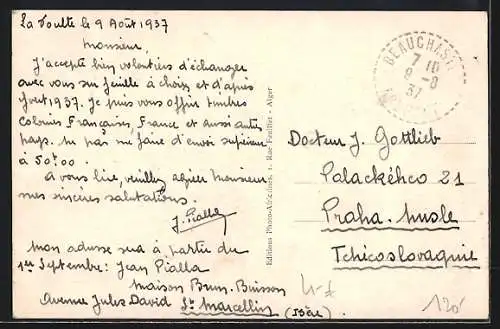 La Voulte le 9 Août 1937
Monsieur,
J'accepte bien volontiers d'échanger
avec vous sur feuille à choix et d'après
Yvert 1937. Je puis vous offrir timbres
Colonies Françaises, France et aussi autres
pays. Ne pas me faire d'envoi supérieur
à 50f00.
à vous lire, veuillez agréer Monsieur
mes sincères salutations.
J. Pialla
Mon adresse sera à partir du
1er Septembre: Jean Pialla
Maison Brun-Buisson
Avenue Jules David St Marcellin (Isère)
Editions Photo-Africaines, 1, Rue Feuillet - Alger
BEAUCHASTEL
7 10
9 - 8
37
Docteur J. Gottlieb
Palackého 21
Praha-Nusle
Tchécoslovaquie
120